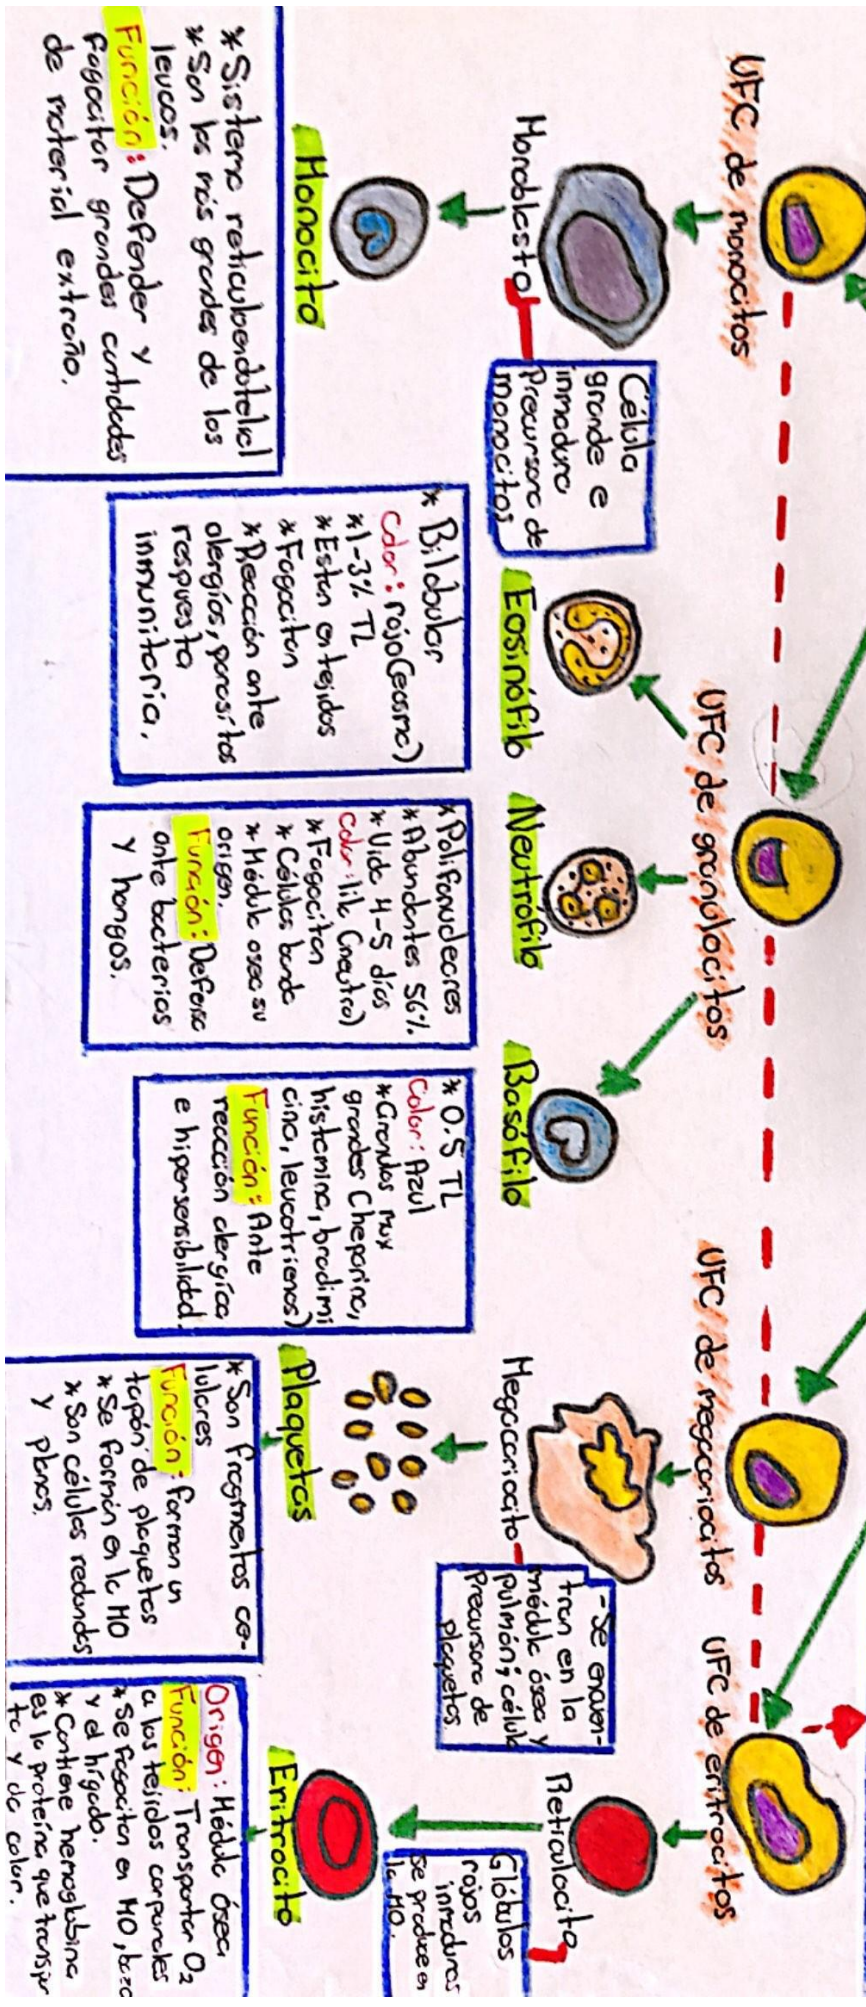 UFC de monocitos
UFC de granulocitos
UFC de megacariocitos
UFC de eritrocitos
Monoblasto
Célula
grande e
inmadura
Precursora de
monocitos
Monocito
* Sistema reticuloendotelial
* Son los más grandes de los
leucos.
Función: Defender y
fagocitar grandes cantidades
de material extraño.
Eosinófilo
* Bilobular
Color: rojo (eosina)
* 1-3% TL
* Estan en tejidos
* Fagocitan
* Reacción ante
alergias, parasitos
respuesta
inmunitaria.
Neutrófilo
* Polifonucleares
* Abundantes 56%
* Vida 4-5 días
Color: lila (neutro)
* Fagocitan
* Células banda
* Médula osea su
origen.
Función: Defensa
ante bacterias
y hongos.
Basófilo
* 0.5 TL
Color: Azul
* Granulos mux
grandes (heparina,
histamina, bradimi
cina, leucotrienos)
Función: Ante
reacción alergica
e hipersensibilidad.
Megacariocito
- Se encuen-
tran en la
médula ósea y
pulmón; célula
precursora de
plaquetas.
Plaquetas
* Son fragmentos ce-
lulares
Función: forman un
tapón de plaquetas
* Se forman en la MO
* Son células redondas
y planas.
Reticulocito
Glóbulos
rojos
inmaduros
Se produce en
la MO.
Eritrocito
Origen: Médula ósea
Función: Transportar O2
a los tejidos corporales
* Se fagocitan en MO, bazo
y el hígado.
* Contiene hemoglobina
es la proteína que transpor
ta y da color.